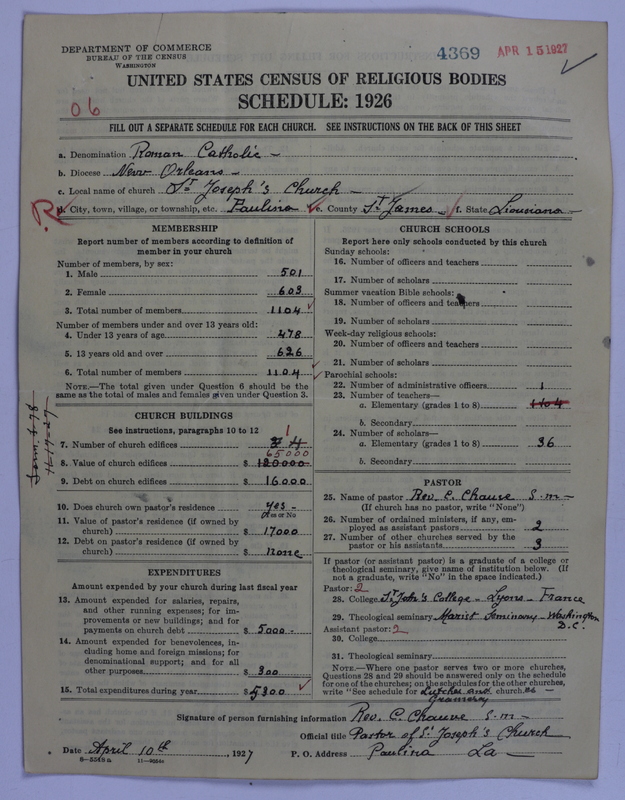 DEPARTMENT OF COMMERCE
BUREAU OF THE CENSUS
WASHINGTON
4369 APR 15 1927
UNITED STATES CENSUS OF RELIGIOUS BODIES
SCHEDULE: 1926
06
FILL OUT A SEPARATE SCHEDULE FOR EACH CHURCH. SEE INSTRUCTIONS ON THE BACK OF THIS SHEET
a. Denomination Roman Catholic
b. Diocese New Orleans
c. Local name of church St Joseph's Church
R
d. City, town, village, or township, etc. Paulina e. County St James f. State Louisiana
MEMBERSHIP
Report number of members according to definition of
member in your church
Number of members, by sex:
1. Male 501
2. Female 603
3. Total number of members 1104
Number of members under and over 13 years old:
4. Under 13 years of age 478
5. 13 years old and over 626
6. Total number of members 1104
NOTE.—The total given under Question 6 should be the
same as the total of males and females given under Question 3.
CHURCH BUILDINGS
See instructions, paragraphs 10 to 12
7. Number of church edifices 4 1
65000
8. Value of church edifices $ 120000
9. Debt on church edifices $ 16000
10. Does church own pastor's residence yes
Yes or No
11. Value of pastor's residence (if owned by
church) $ 17000
12. Debt on pastor's residence (if owned by
church) $ none
EXPENDITURES
Amount expended by your church during last fiscal year
13. Amount expended for salaries, repairs,
and other running expenses; for im-
provements or new buildings; and for
payments on church debt $ 5000
14. Amount expended for benevolences, in-
cluding home and foreign missions; for
denominational support; and for all
other purposes $ 300
15. Total expenditures during year $ 5300
CHURCH SCHOOLS
Report here only schools conducted by this church
Sunday schools:
16. Number of officers and teachers
17. Number of scholars
Summer vacation Bible schools:
18. Number of officers and teachers
19. Number of scholars
Week-day religious schools:
20. Number of officers and teachers
21. Number of scholars
Parochial schools:
22. Number of administrative officers 1
23. Number of teachers—
a. Elementary (grades 1 to 8) 1104
b. Secondary
24. Number of scholars—
a. Elementary (grades 1 to 8) 36
b. Secondary
PASTOR
25. Name of pastor Rev. C. Chauve S.M
(If church has no pastor, write "None")
26. Number of ordained ministers, if any, em-
ployed as assistant pastors 2
27. Number of other churches served by the
pastor or his assistants 3
If pastor (or assistant pastor) is a graduate of a college or
theological seminary, give name of institution below. (If
not a graduate, write "No" in the space indicated.)
Pastor: 2
28. College St John's College Lyons France
29. Theological seminary Marist Seminary Washington
D.C.
Assistant pastor: 2
30. College
31. Theological seminary
NOTE.—Where one pastor serves two or more churches,
Questions 28 and 29 should be answered only on the schedule
for one of the churches; on the schedules for the other churches,
write "See schedule for Lutcher and church.es
Gramercy
Signature of person furnishing information Rev. C. Chauve S.M
Official title Pastor of St Joseph's Church
Date April 10th, 1927 P. O. Address Paulina La
8—5548 a